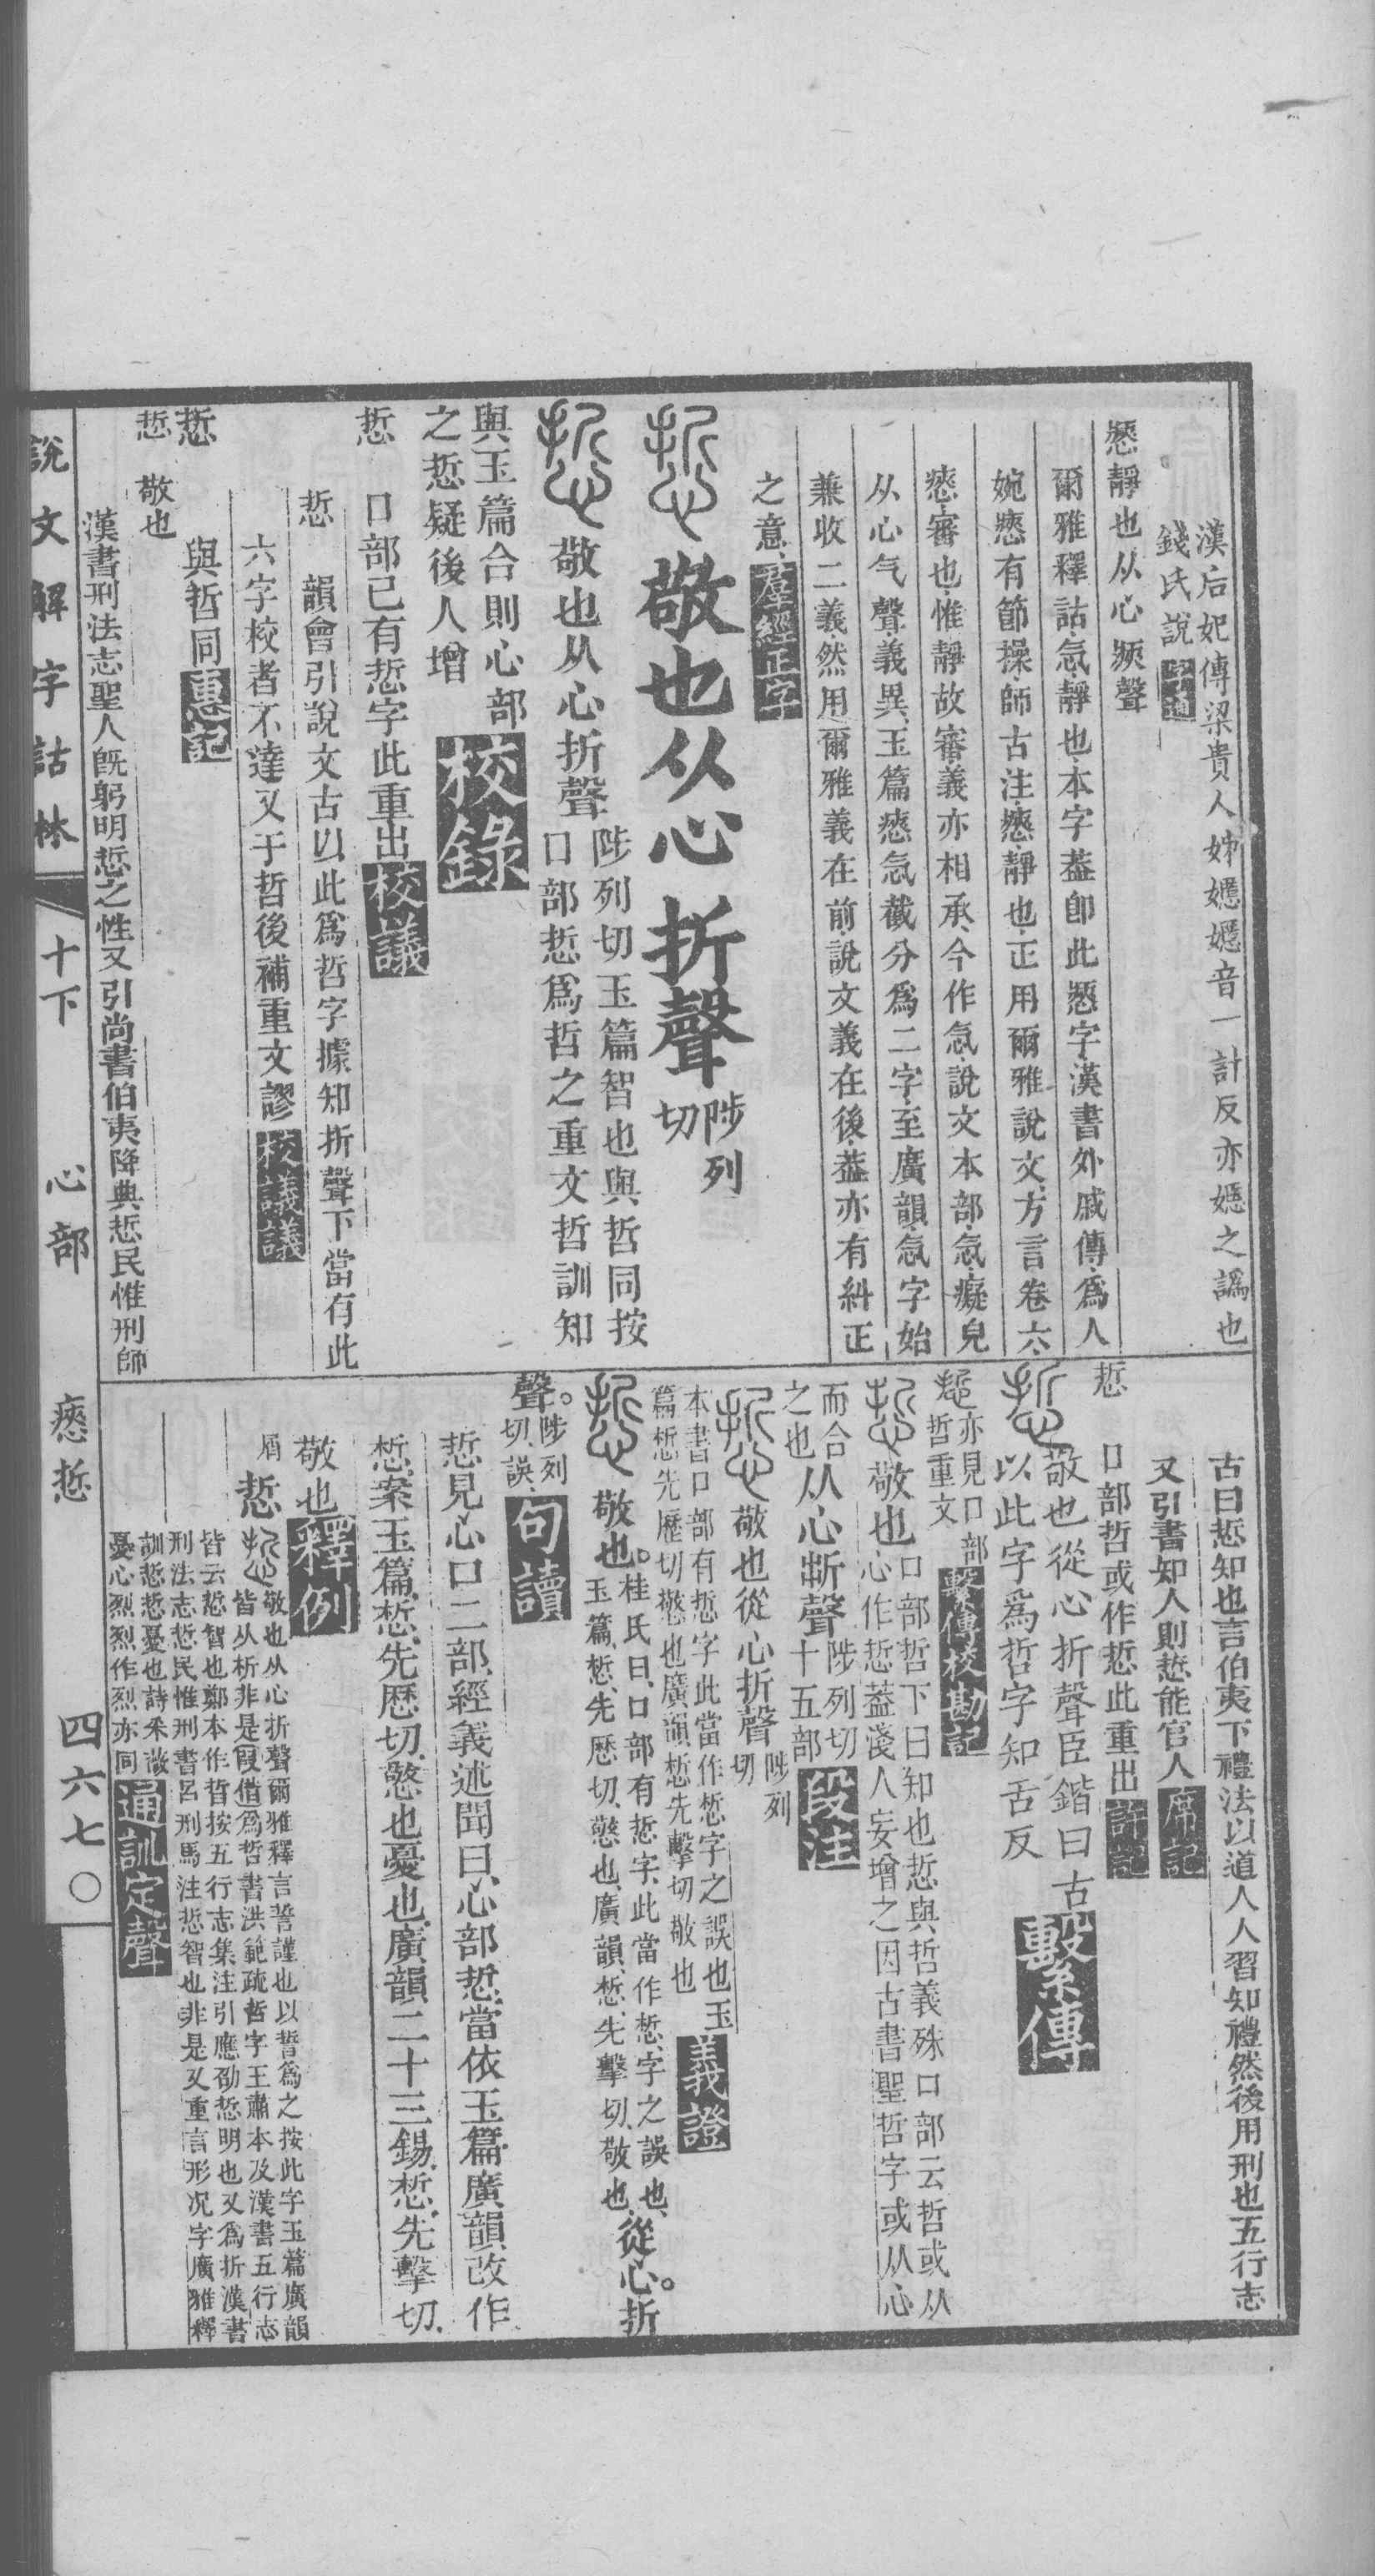 漢后妃傳梁貴人姊嫕嫕音一計反亦嫕之譌也
錢氏說
瘱靜也从心㾜聲
爾雅釋詁忥靜也本字葢卽此瘱字漢書外戚傳爲人
婉瘱有節操師古注瘱靜也正用爾雅說文方言卷六
瘱審也惟靜故審義亦相承今作忥說文本部忥癡皃
从心气聲義異玉篇瘱忥截分爲二字至廣韻忥字始
兼收二義然用爾雅義在前說文義在後葢亦有糾正
之意羣經正字
敬也从心折聲陟列切
敬也从心折聲陟列切玉篇智也與哲同按
口部悊爲哲之重文哲訓知
與玉篇合則心部
之悊疑後人增校錄
悊
口部已有悊字此重出校議
悊 韻會引說文古以此爲哲字據知折聲下當有此
六字校者不達又于哲後補重文謬校議議
悊
與哲同惠記
悊 敬也
漢書刑法志聖人旣躬明悊之性又引尚書伯夷降典悊民惟刑師
古曰悊知也言伯夷下禮法以道人人習知禮然後用刑也五行志
又引書知人則悊能官人席記
悊
口部哲或作悊此重出許記
敬也從心折聲臣鍇曰古
以此字爲哲字知舌反繫傳
亦見口部
哲重文繫傳校勘記
敬也口部哲下曰知也悊與哲義殊口部云哲或从
心作悊葢淺人妄增之因古書聖哲字或从心
而合
之也从心斷聲陟列切
十五部段注
敬也從心折聲陟列切
本書口部有悊字此當作惁字之誤也玉
篇惁先歷切憼也廣韻惁先擊切敬也義證
敬也。桂氏曰口部有悊字此當作惁字之誤也
玉篇惁先歷切憼也廣韻惁先擊切敬也從心。折
聲。陟列
切誤句讀
悊見心口二部經義述聞曰心部悊當依玉篇廣韻改作
惁案玉篇惁先歷切憼也憂也廣韻二十三錫惁先擊切
敬也釋例
屑 悊 敬也从心折聲爾雅釋言誓謹也以誓爲之按此字玉篇廣韻
皆从析非是叚借爲哲書洪範疏哲字王肅本及漢書五行志
皆云悊智也鄭本作晢按五行志集注引應劭悊明也又爲折漢書
刑法志悊民惟刑書呂刑馬注悊智也非是又重言形况字廣雅釋
訓悊悊憂也詩釆薇
憂心烈烈作烈亦同通訓定聲
說文解字詁林 十下 心部 瘱悊 四六七〇